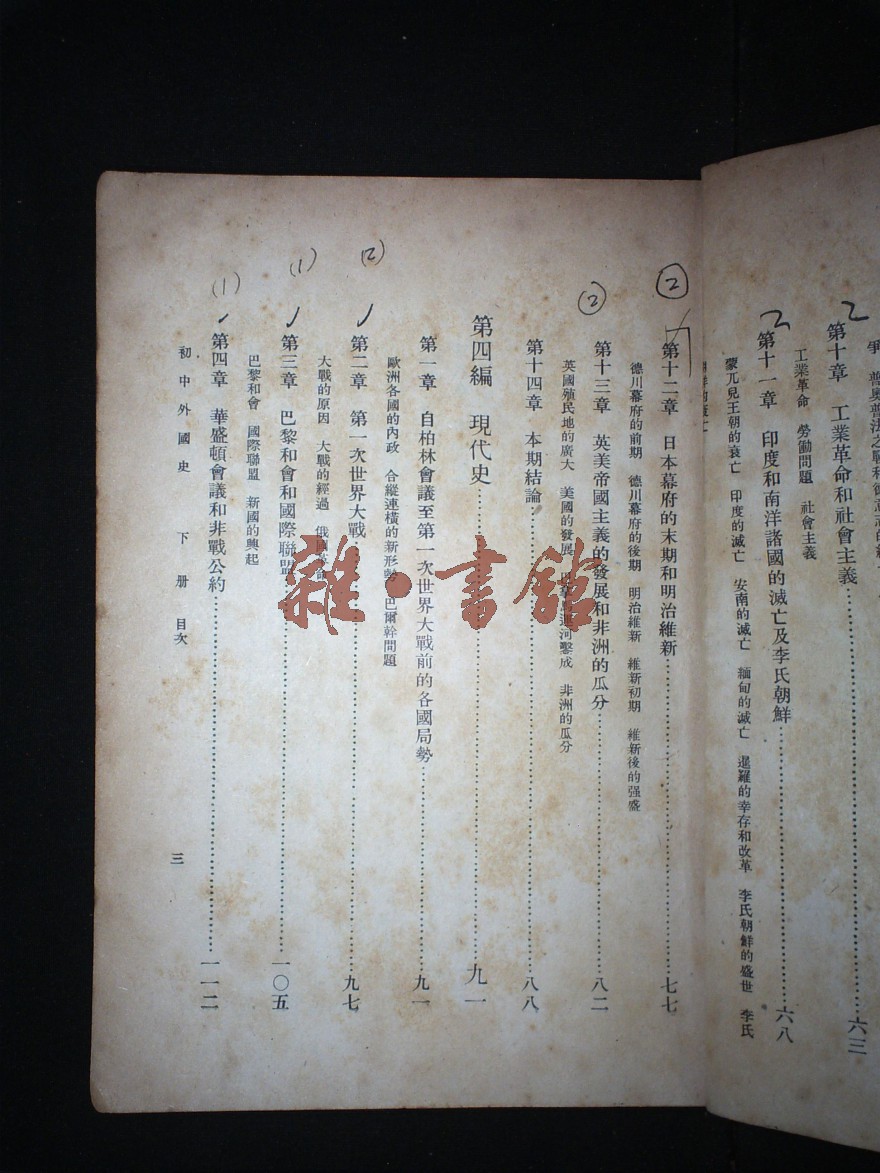 普奧普法之戰和德意志的統一
第十章　工業革命和社會主義……六三
工業革命　勞働問題　社會主義
第十一章　印度和南洋諸國的滅亡及李氏朝鮮……六八
蒙兀兒王朝的衰亡　印度的滅亡　安南的滅亡　緬甸的滅亡　暹羅的幸存和改革　李氏朝鮮的盛世　李氏
2
2
②
第十二章　日本幕府的末期和明治維新……七七
德川幕府的前期　德川幕府的後期　明治維新　維新初期　維新後的强盛
②
第十三章　英美帝國主義的發展和非洲的瓜分……八二
英國殖民地的廣大　美國的發展　河鑿成　非洲的瓜分
第十四章　本期結論……八八
第四編　現代史……九一
第一章　自柏林會議至第一次世界大戰前的各國局勢……九一
歐洲各國的內政　合縱連橫的新形勢　巴爾幹問題
(2)
第二章　第一次世界大戰……九七
大戰的原因　大戰的經過　俄國
(1)
第三章　巴黎和會和國際聯盟……一〇五
巴黎和會　國際聯盟　新國的興起
(1)
第四章　華盛頓會議和非戰公約……一一二
初中外國史　下册　目次
三
雜·書館